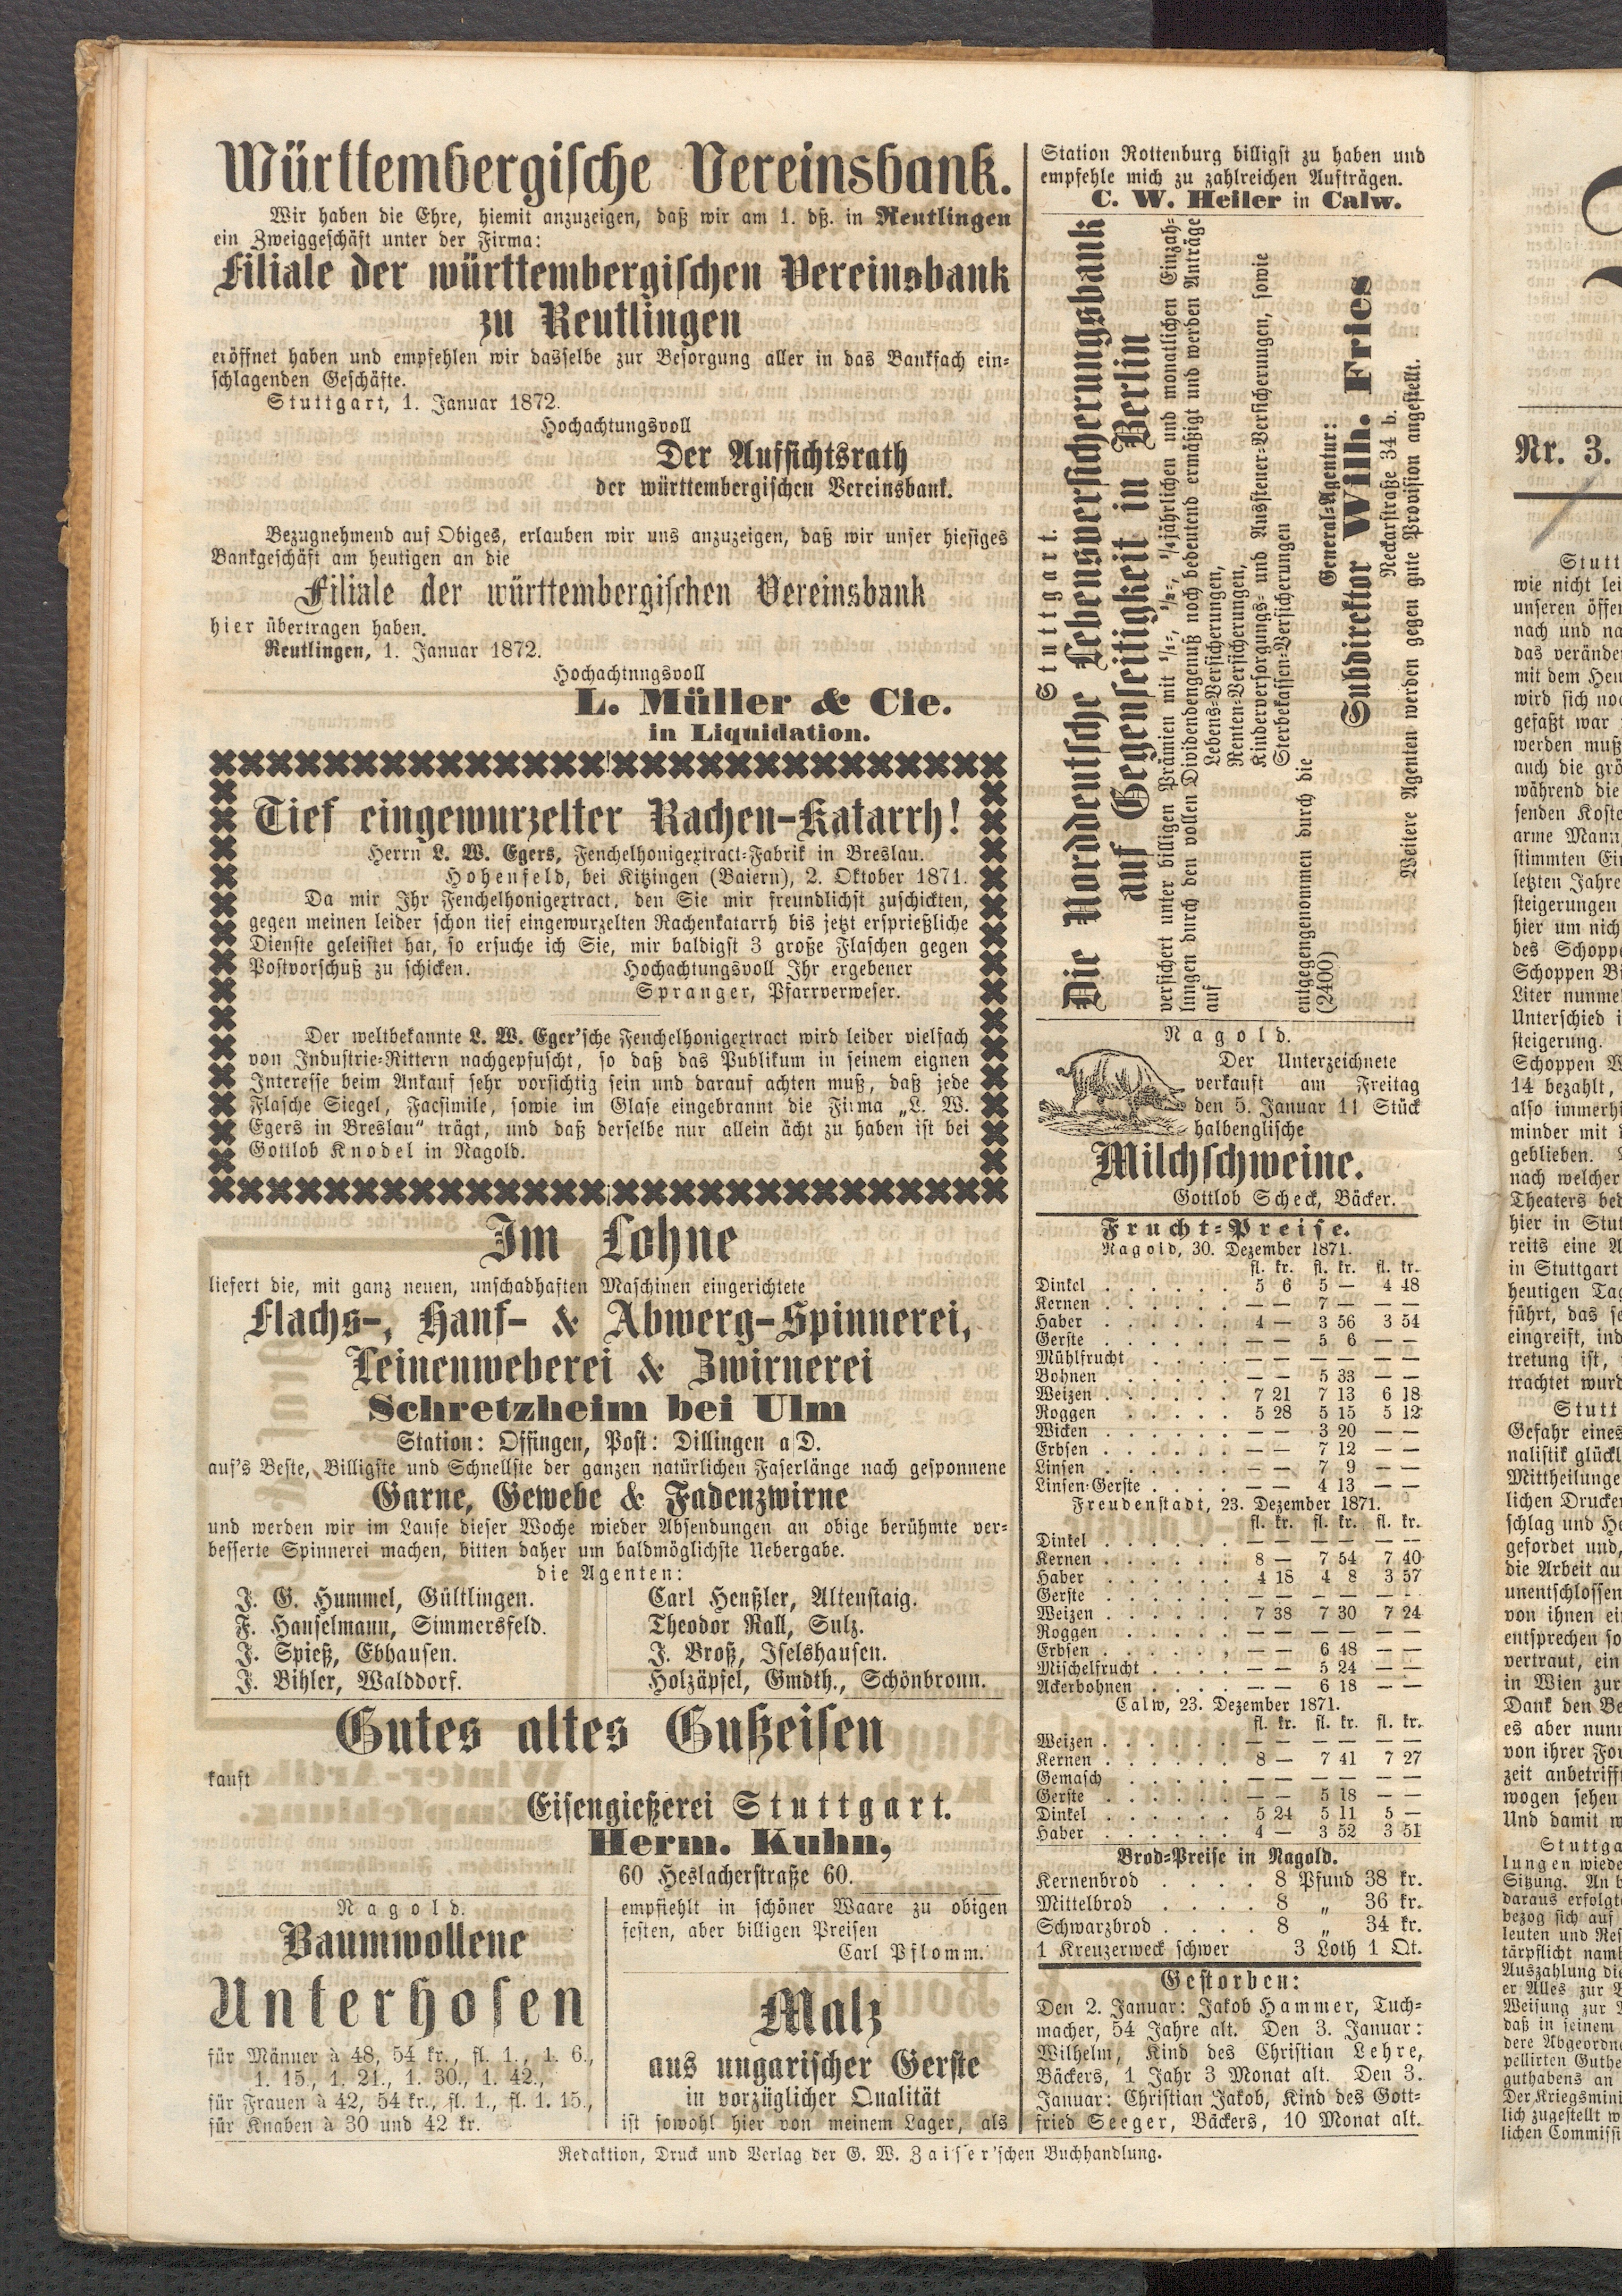 Württembergische Vereinsbank.
Wir haben die Ehre, hiemit anzuzeigen, daß wir am 1. dß. in Reutlingen
ein Zweiggeschäft unter der Firma:
Filiale der württembergischen Vereinsbank
zu Reutlingen
eröffnet haben und empfehlen wir dasselbe zur Besorgung aller in das Bankfach ein-
schlagenden Geschäfte.
Stuttgart, 1. Januar 1872.
Hochachtungsvoll
Der Aufsichtsrath
der württembergischen Vereinsbank.
Bezugnehmend auf Obiges, erlauben wir uns anzuzeigen, daß wir unser hiesiges
Bankgeschäft am heutigen an die
Filiale der württembergischen Vereinsbank
hier übertragen haben.
Reutlingen, 1. Januar 1872.
Hochachtungsvoll
L. Müller & Cie.
in Liquidation.
Tief eingewurzelter Rachen-Katarrh!
Herrn L. W. Egers, Fenchelhonigextract-Fabrik in Breslau.
Hohenfeld, bei Kitzingen (Baiern), 2. Oktober 1871.
Da mir Ihr Fenchelhonigextract, den Sie mir freundlichst zuschickten,
gegen meinen leider schon tief eingewurzelten Rachenkatarrh bis jetzt ersprießliche
Dienste geleistet hat, so ersuche ich Sie, mir baldigst 3 große Flaschen gegen
Postvorschuß zu schicken. Hochachtungsvoll Ihr ergebener
Spranger, Pfarrverweser.
Der weltbekannte L. W. Eger'sche Fenchelhonigextract wird leider vielfach
von Industrie-Rittern nachgepfuscht, so daß das Publikum in seinem eignen
Interesse beim Ankauf sehr vorsichtig sein und darauf achten muß, daß jede
Flasche Siegel, Facsimile, sowie im Glase eingebrannt die Firma „L. W.
Egers in Breslau" trägt, und daß derselbe nur allein ächt zu haben ist bei
Gottlob Knodel in Nagold.
Im Lohne
liefert die, mit ganz neuen, unschadhaften Maschinen eingerichtete
Flachs-, Hanf- & Abwerg-Spinnerei,
Leinenweberei & Zwirnerei
Schretzheim bei Ulm
Station: Offingen, Post: Dillingen a/D.
auf's Beste, Billigste und Schnellste der ganzen natürlichen Faserlänge nach gesponnene
Garne, Gewebe & Fadenzwirne
und werden wir im Laufe dieser Woche wieder Absendungen an obige berühmte ver-
besserte Spinnerei machen, bitten daher um baldmöglichste Uebergabe.
die Agenten:
J. G. Hummel, Gültlingen.
F. Hanselmann, Simmersfeld.
J. Spieß, Ebhausen.
J. Bihler, Walddorf.
Carl Henßler, Altenstaig.
Theodor Rall, Sulz.
J. Broß, Iselshausen.
Holzäpfel, Gmdth., Schönbronn.
Gutes altes Gußeisen
kauft
Eisengießerei Stuttgart.
Herm. Kuhn,
60 Heslacherstraße 60.
Nagold.
Baumwollene
Unterhosen
für Männer à 48, 54 kr., fl. 1., 1. 6.,
1. 15., 1. 21., 1. 30., 1. 42.,
für Frauen à 42, 54 kr., fl. 1., fl. 1. 15.,
für Knaben à 30 und 42 kr.
empfiehlt in schöner Waare zu obigen
festen, aber billigen Preisen
Carl Pflomm.
Malz
aus ungarischer Gerste
in vorzüglicher Qualität
ist sowohl hier von meinem Lager, als
Station Rottenburg billigst zu haben und
empfehle mich zu zahlreichen Aufträgen.
C. W. Heiler in Calw.
Stuttgart.
Die Norddeutsche Lebensversicherungsbank
auf Gegenseitigkeit in Berlin
versichert unter billigen Prämien mit 1/1-, 1/2-, 1/4jährlichen und monatlichen Einzah-
lungen durch den vollen Dividendengenuß noch bedeutend ermäßigt und werden Anträge
auf
Lebens-Versicherungen,
Renten-Versicherungen,
Kinderversorgungs- und Aussteuer-Versicherungen, sowie
Sterbekassen-Versicherungen
entgegengenommen durch die
(2400)
General-Agentur:
Subdirektor Wilh. Fries
Neckarstraße 34 b.
Weitere Agenten werden gegen gute Provision angestellt.
Nagold.
Der Unterzeichnete
verkauft am Freitag
den 5. Januar 11 Stück
halbenglische
Milchschweine.
Gottlob Scheck, Bäcker.
Frucht-Preise.
Nagold, 30. Dezember 1871.
fl. kr. fl. kr. fl. kr.
Dinkel . . . . . . 5 6 5 — 4 48
Kernen . . . . . . — — 7 — — —
Haber . . . . . . 4 — 3 56 3 54
Gerste . . . . . . — — 5 6 — —
Mühlfrucht . . . . — — — — — —
Bohnen . . . . . — — 5 33 — —
Weizen . . . . . . 7 21 7 13 6 18
Roggen . . . . . 5 28 5 15 5 12
Wicken . . . . . . — — 3 20 — —
Erbsen . . . . . . — — 7 12 — —
Linsen . . . . . . — — 7 9 — —
Linsen-Gerste . . . . — — 4 13 — —
Freudenstadt, 23. Dezember 1871.
fl. kr. fl. kr. fl. kr.
Dinkel . . . . . . — — — — — —
Kernen . . . . . . 8 — 7 54 7 40
Haber . . . . . . 4 18 4 8 3 57
Gerste . . . . . . — — — — — —
Weizen . . . . . . 7 38 7 30 7 24
Roggen . . . . . — — — — — —
Erbsen . . . . . . — — 6 48 — —
Mischelfrucht . . . . — — 5 24 — —
Ackerbohnen . . . . — — 6 18 — —
Calw, 23. Dezember 1871.
fl. kr. fl. kr. fl. kr.
Weizen . . . . . . — — — — — —
Kernen . . . . . . 8 — 7 41 7 27
Gemasch . . . . . — — — — — —
Gerste . . . . . . — — 5 18 — —
Dinkel . . . . . . 5 24 5 11 5 —
Haber . . . . . . 4 — 3 52 3 51
Brod-Preise in Nagold.
Kernenbrod . . . . 8 Pfund 38 kr.
Mittelbrod . . . . 8 „ 36 kr.
Schwarzbrod . . . . 8 „ 34 kr.
1 Kreuzerweck schwer 3 Loth 1 Qt.
Gestorben:
Den 2. Januar: Jakob Hammer, Tuch-
macher, 54 Jahre alt. Den 3. Januar:
Wilhelm, Kind des Christian Lehre,
Bäckers, 1 Jahr 3 Monat alt. Den 3.
Januar: Christian Jakob, Kind des Gott-
fried Seeger, Bäckers, 10 Monat alt.
Redaktion, Druck und Verlag der G. W. Zaiser'schen Buchhandlung.
Nr. 3.
Stutt
wie nicht lei
unseren öffen
nach und na
das verände
mit dem Heu
wird sich noc
gefaßt war
werden muß
auch die grö
während die
senden Koste
arme Mann,
stimmten Ei
letzten Jahre
steigerungen
hier um nich
des Schoppe
Schoppen Bi
Liter nunme
Unterschied i
steigerung.
Schoppen W
14 bezahlt,
also immerhi
minder mit
geblieben.
nach welcher
Theaters bed
hier in Stut
reits eine A
in Stuttgart
heutigen Tag
führt, das se
eingreift, ind
tretung ist,
trachtet wurd
Stutt
Gefahr eines
nalistik glückl
Mittheilunge
lichen Drucker
schlag und He
gefordet und,
die Arbeit au
unentschlossen
von ihnen ei
entsprechen so
vertraut, ein
in Wien zur
Dank den Be
es aber nunm
von ihrer For
zeit anbetriff
wogen sehen
Und damit w
Stuttga
lungen wiede
Sitzung. An b
daraus erfolgt
bezog sich auf
leuten und Res
tärpflicht naml
Auszahlung die
er Alles zur
Weisung zur
daß in seinem
dere Abgeordne
pellirten Guthe
guthabens an
Der Kriegsmini
lich zugestellt w
lichen Commissi